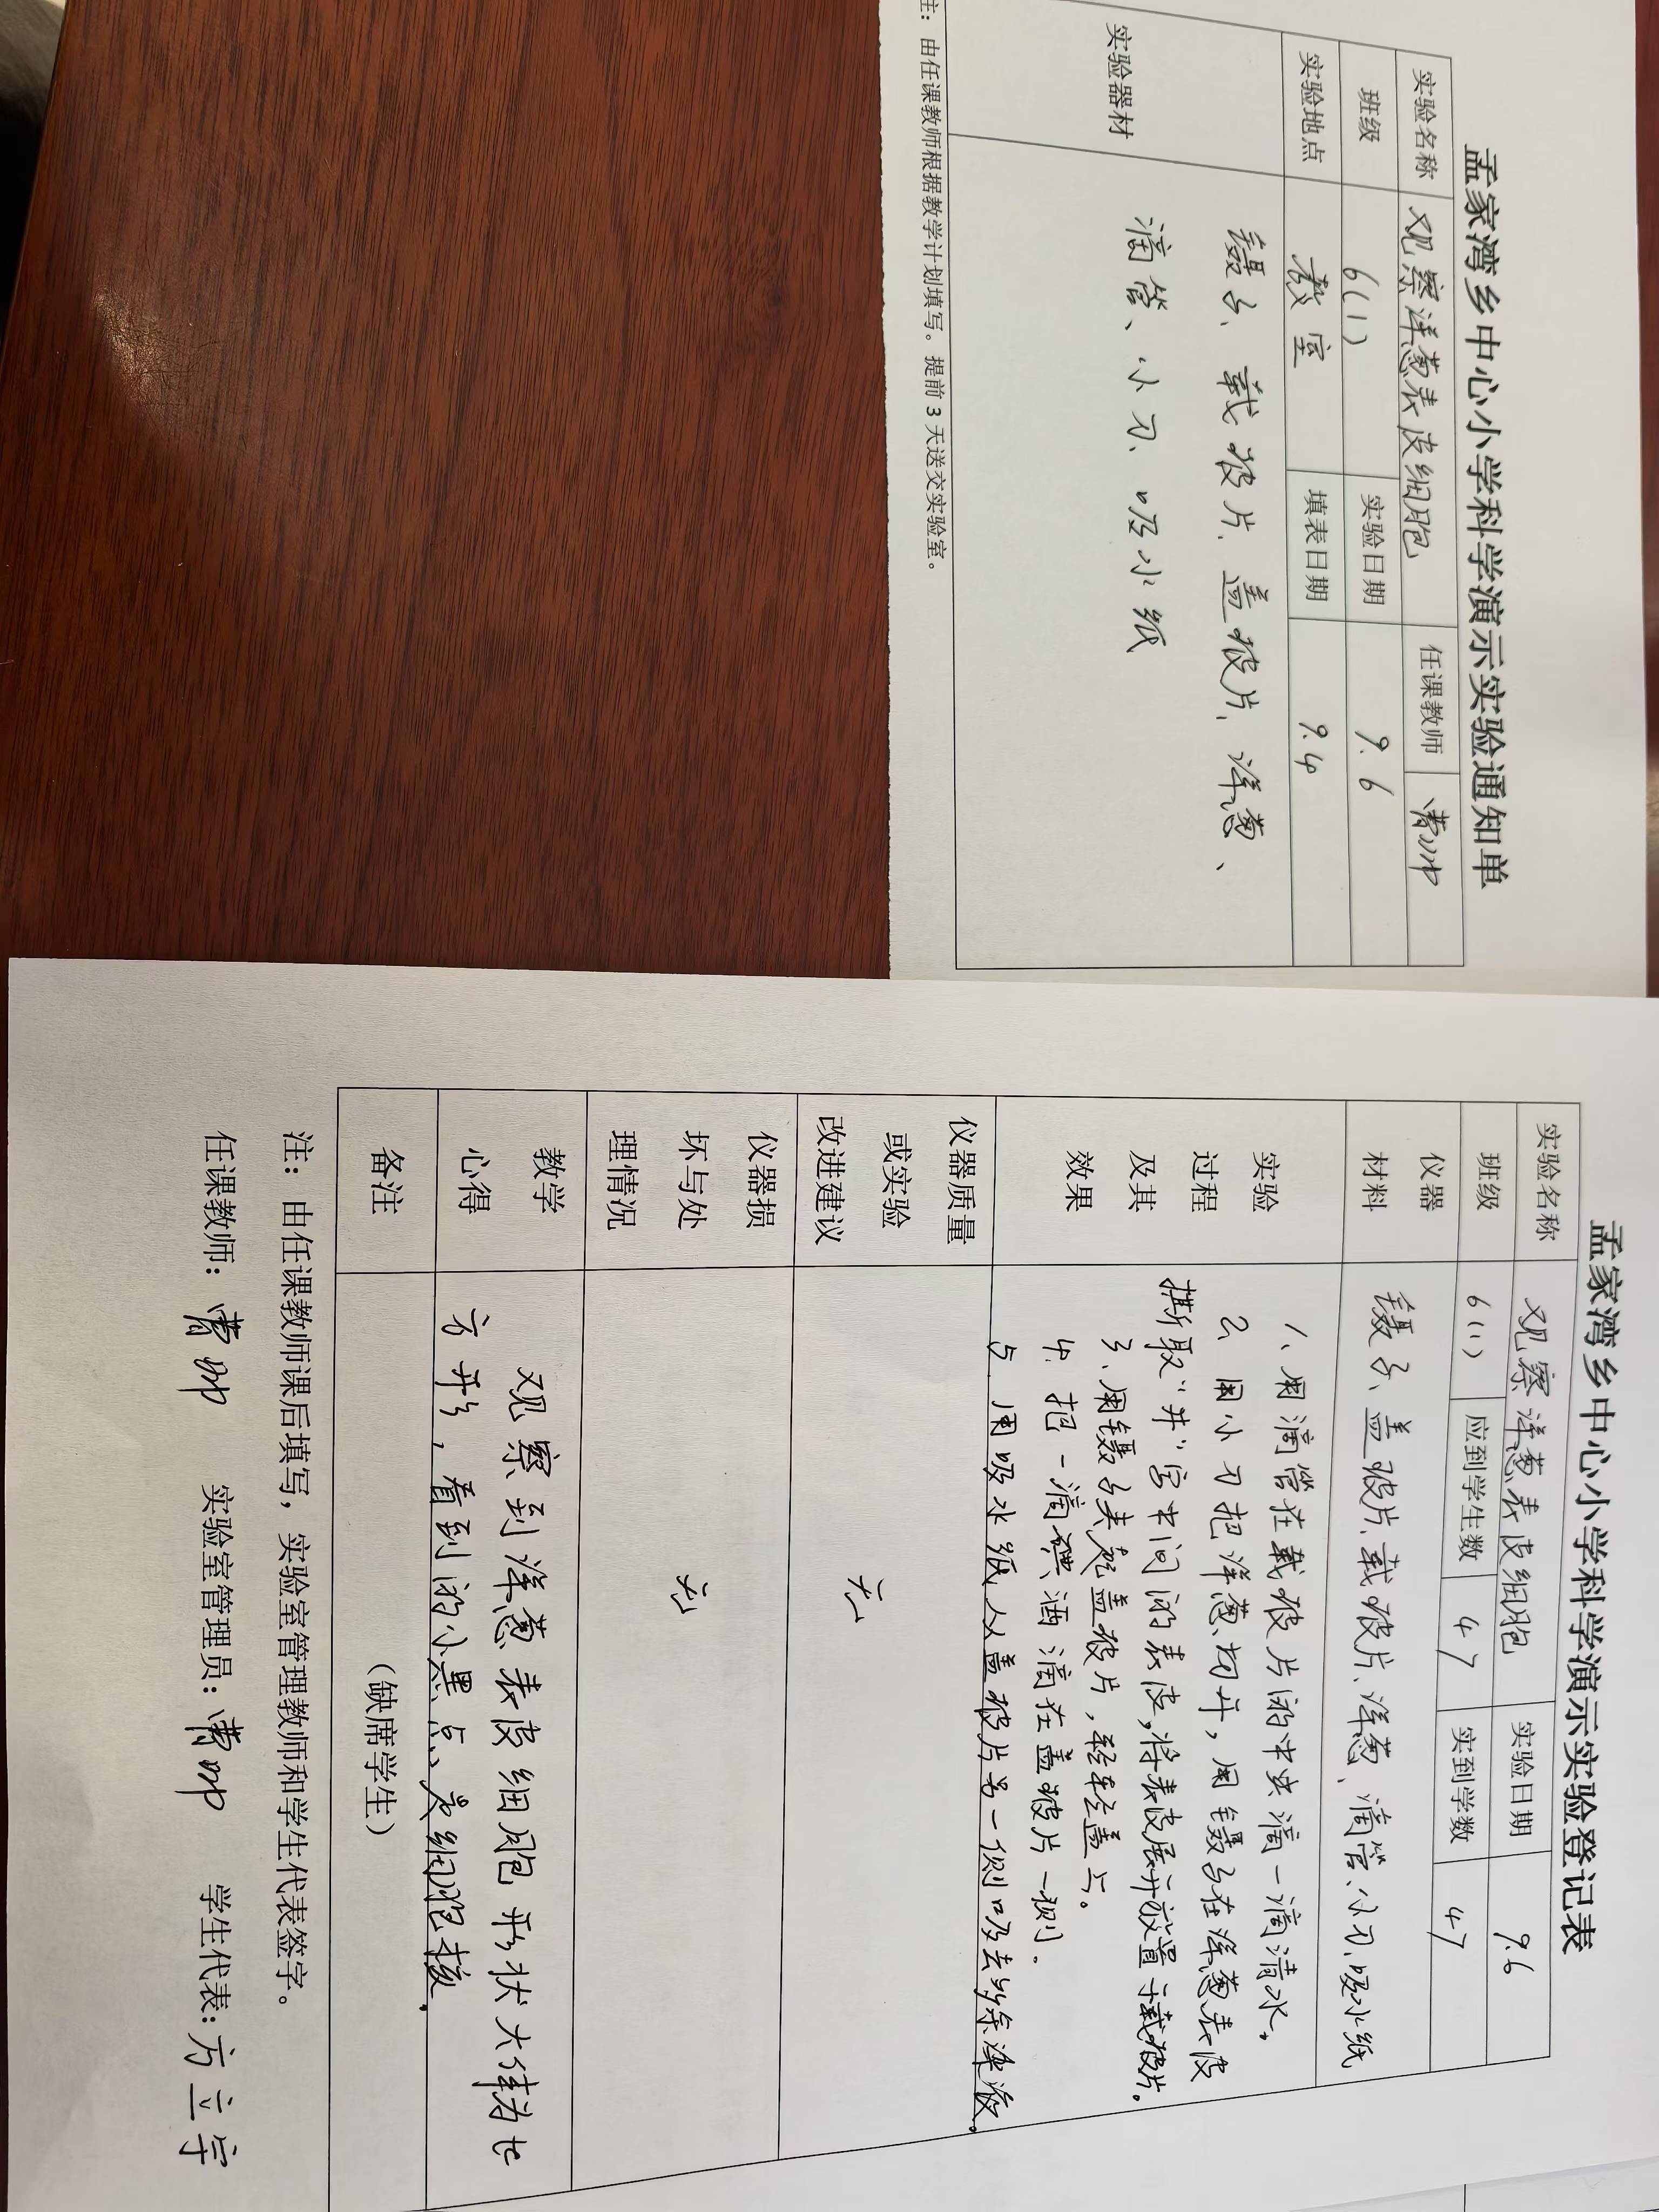 孟家湾乡中心小学科学演示实验通知单
实验名称 观察洋葱表皮细胞 任课教师
班级 6(1) 实验日期 9.6
实验地点 教室 填表日期 9.4
实验器材 镊子、载玻片、盖玻片、洋葱、
滴管、小刀、吸水纸
注：由任课教师根据教学计划填写。提前 3 天送交实验室。
孟家湾乡中心小学科学演示实验登记表
实验名称 观察洋葱表皮细胞 实验日期 9.6
班级 6(1) 应到学生数 47 实到学数 47
仪器
材料
镊子、盖玻片、载玻片、洋葱、滴管、小刀、吸水纸
实验
过程
及其
效果
1、用滴管在载玻片的中央滴一滴清水。
2、用小刀把洋葱切开，用镊子在洋葱表皮
撕取“井”字中间的表皮，将表皮展开放置于载玻片。
3、用镊子夹起盖玻片，轻轻盖上。
4. 把一滴碘酒滴在盖玻片一侧.
5. 用吸水纸从盖玻片另一侧吸去多余染液。
仪器质量
或实验
改进建议
无
仪器损
坏与处
理情况
无
教学
心得
观察到洋葱表皮细胞形状大体为长
方形，看到的小黑点是细胞核.
备注
（缺席学生）
注：由任课教师课后填写，实验室管理教师和学生代表签字。
任课教师： 实验室管理员： 学生代表：方立宇